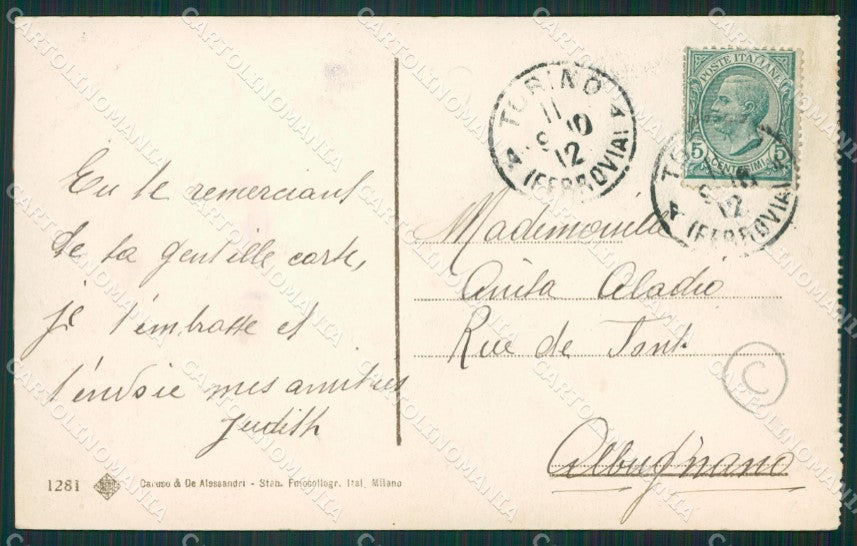 En te remerciant
de ta gentille carte,
je t'embrasse et
t'envoie mes amitiés
Judith
1281 Caruso & De Alessandri - Stab. Fotocollogr. Ital. Milano
TORINO
11
9 10
12
(FERROVIA)
POSTE ITALIANE
5 CENTESIMI 5
TO
12
(FERROVIA)
Mademoiselle
Anita Aladio
Rue de
Albugnano
C
CARTOLINOMANIA